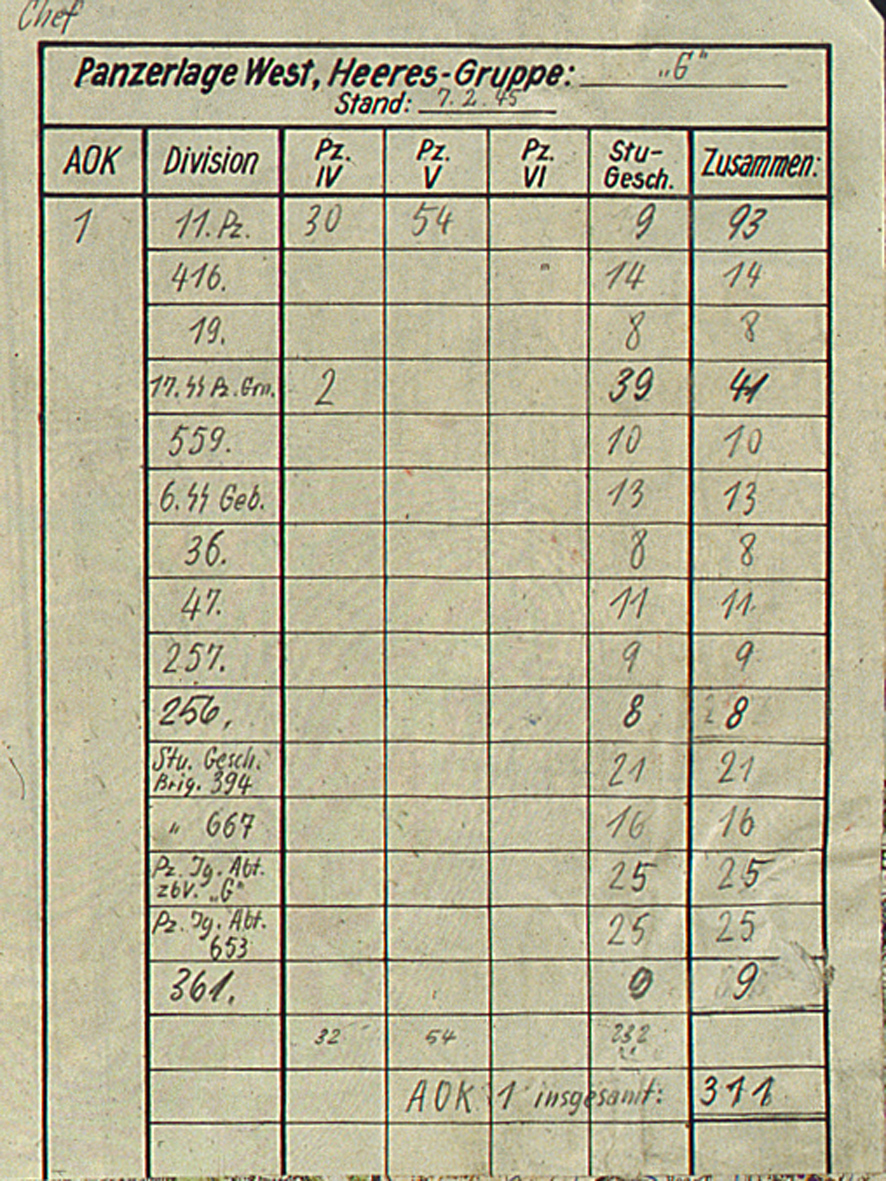 Chef
Panzerlage West, Heeres-Gruppe: „G"
Stand: 7. 2. 45
AOK Division Pz. IV Pz. V Pz. VI Stu-Gesch. Zusammen:
1 11. Pz. 30 54 9 93
416. " 14 14
19. 8 8
17. SS Pz. Grn. 2 39 41
559. 10 10
6. SS Geb. 13 13
36. 8 8
47. 11 11
257. 9 9
256. 8 8
Stu. Gesch.
Brig. 394 21 21
" 667 16 16
Pz. Jg. Abt.
zbV. „G" 25 25
Pz. Jg. Abt.
653 25 25
361. 9
32 54 232
AOK 1 insgesamt: 311